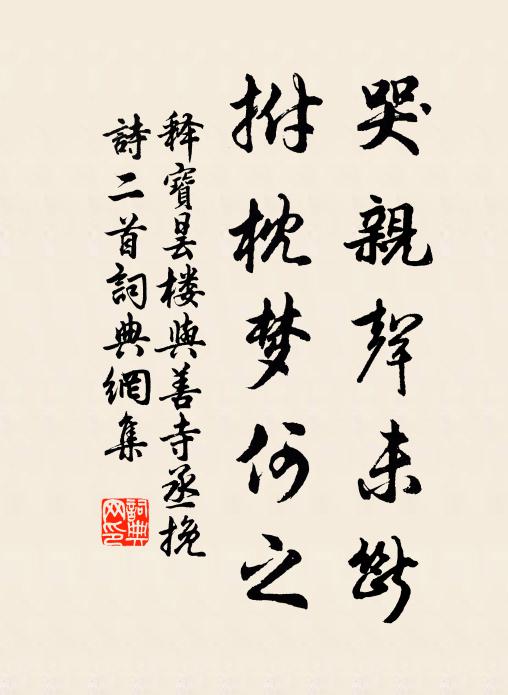 哭親聲未斷
拊枕梦何之
释寶曇楼與善寺丞挽
詩二首詞典網集
詞典网印